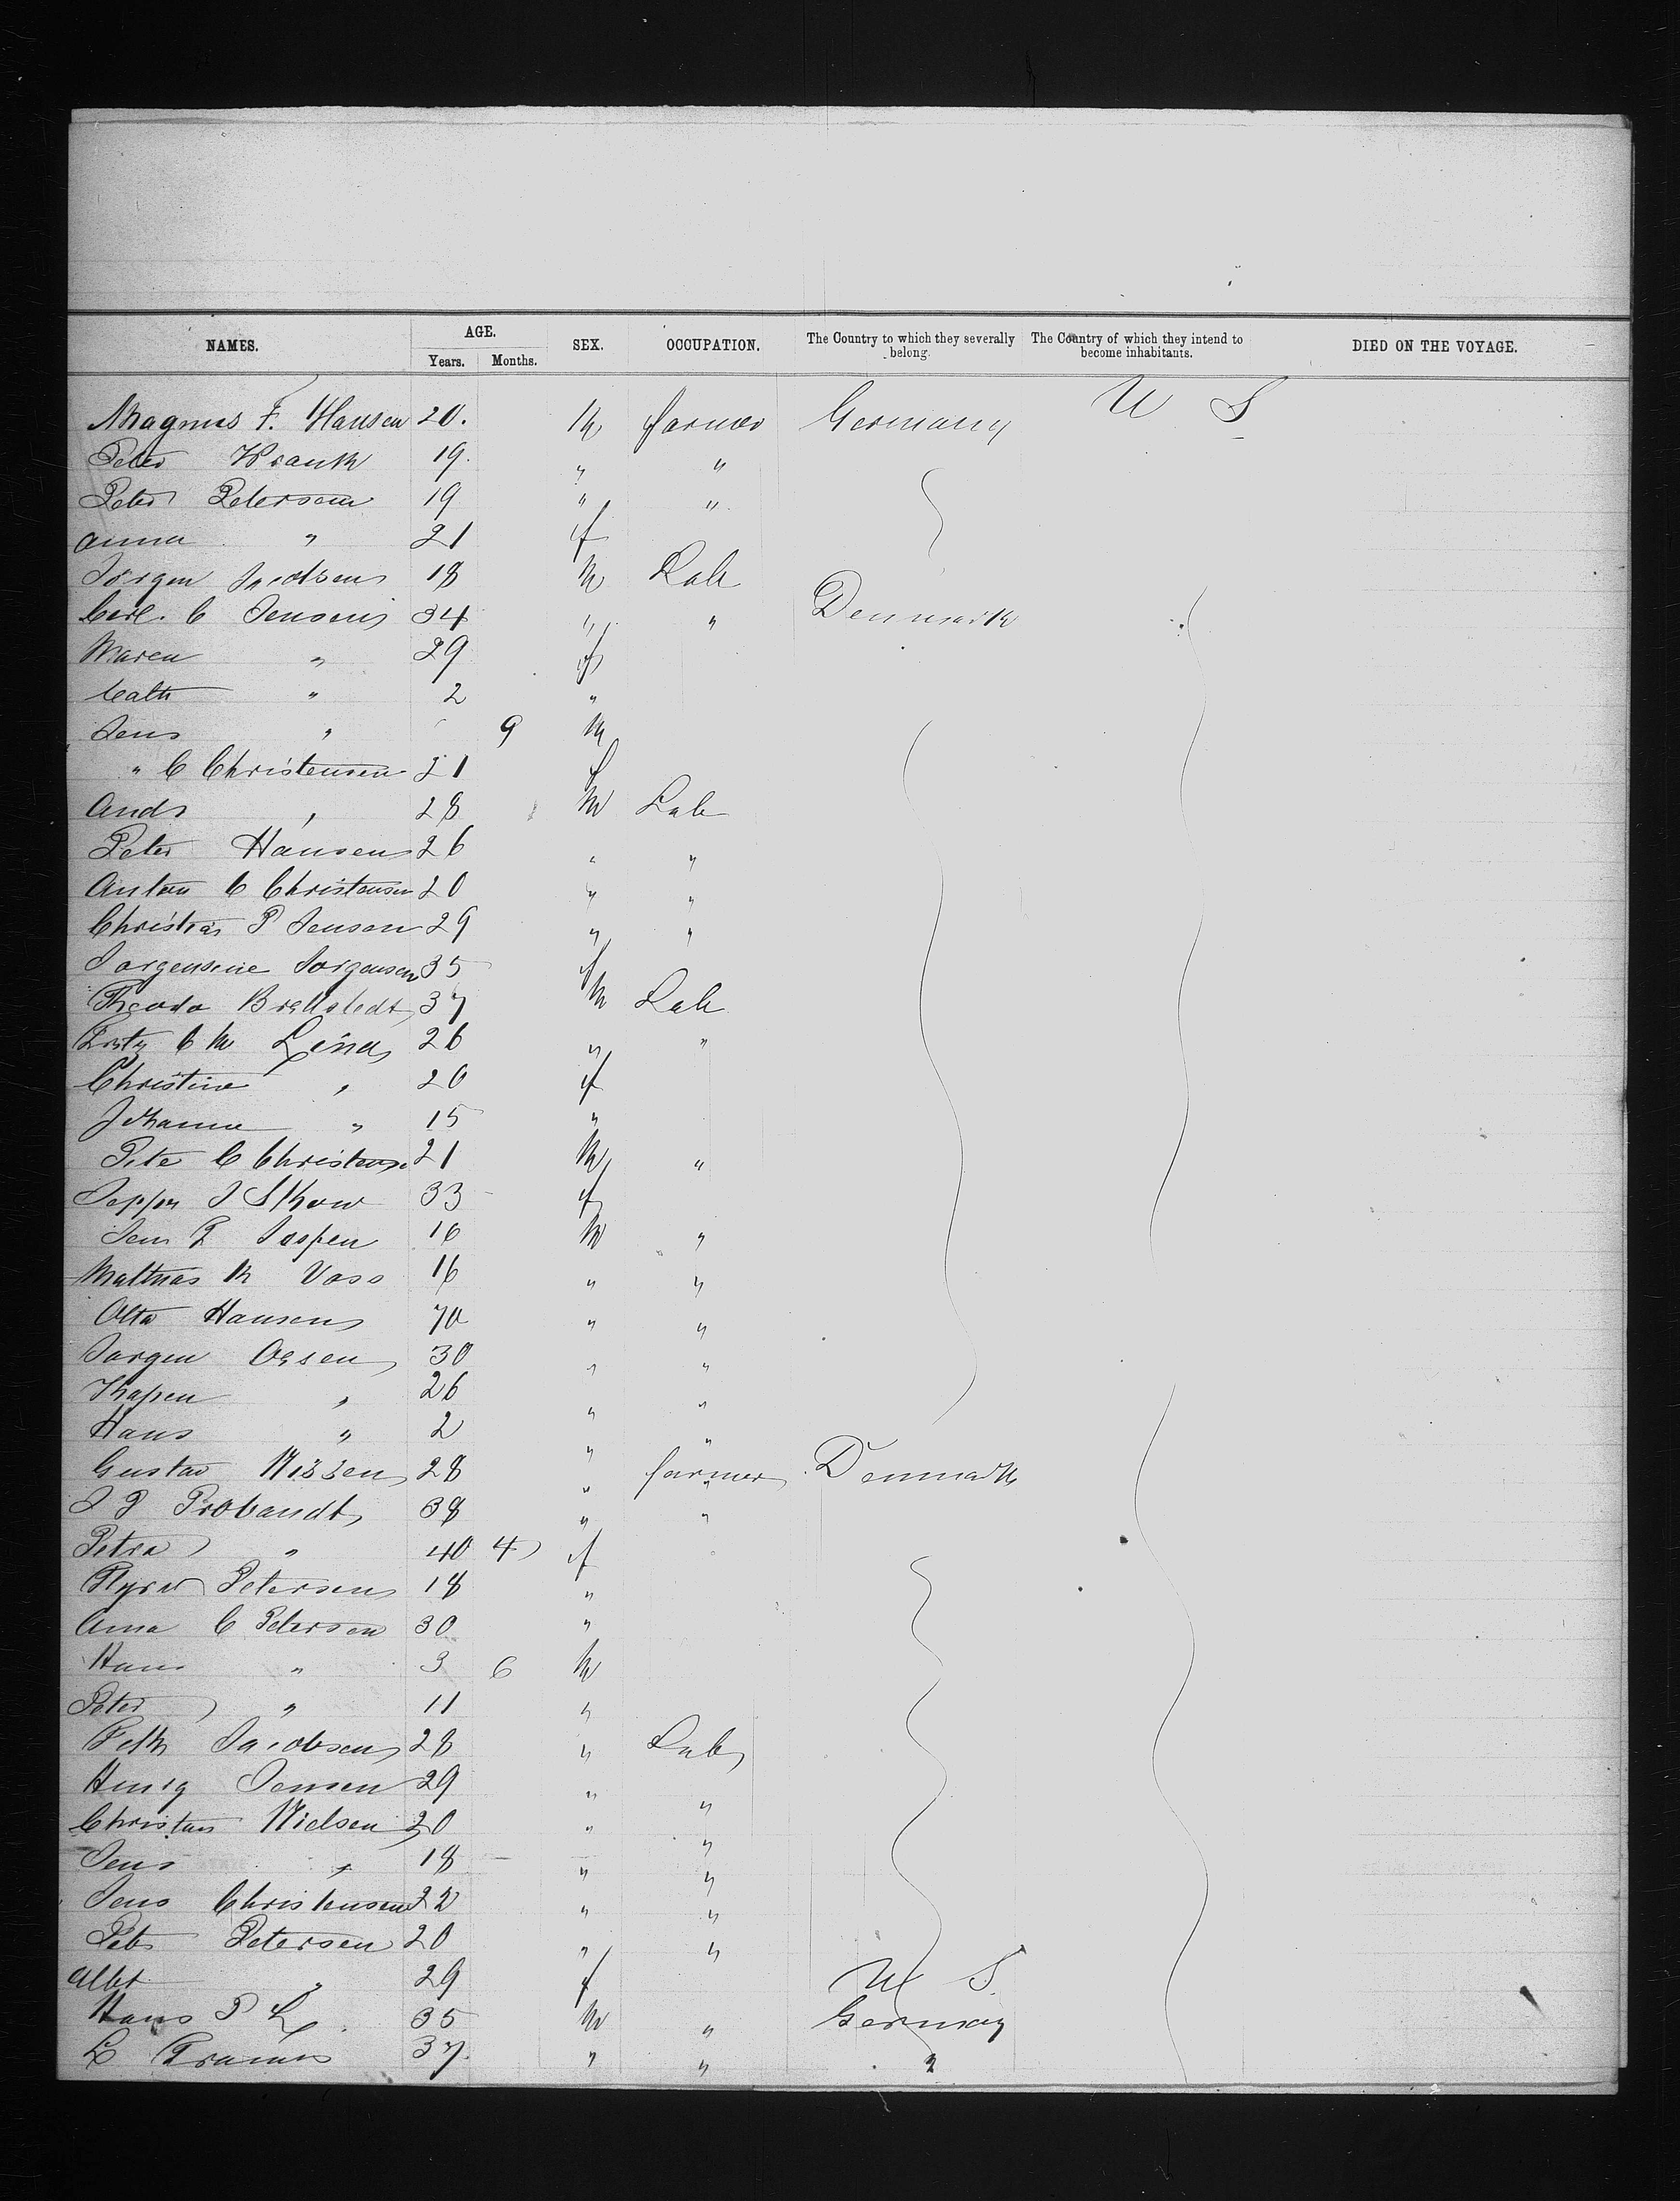 NAMES. AGE. SEX. OCCUPATION. The Country to which they severally belong. The Country of which they intend to become inhabitants. DIED ON THE VOYAGE.
Years. Months.
Magnus F. Hansen 20. M farmer Germany U S
Peter Krank 19. " "
Peter Petersen 19 " "
Anna " 21 f
Jörgen Jacobsen 18 M Lab
Carl. C Jensen 34 " " Denmark
Maren " 29 f
Cath " 2 "
Jens " 9 M
" C Christensen 21 f
Ands " 28 M Lab
Peter Hansen 26 " "
Anton C Christensen 20 " "
Christian P Jensen 29 " "
Jorgensine Jorgensen 35 f
Theodo Brellstedt 37 M Lab
C M Lind 26 " "
Christine " 20 f
Johanna " 15 "
Pete C Christense 21 M "
J Skow 33 f
Jens P Jespen 16 M "
Mathias M Voss 16 " "
Otto Hansen 70 " "
Jorgen Olsen 30 " "
" 26 " "
Hans " 2 " "
Gustav Nissen 28 " farmer Denmark
J P Probandt 38 " "
Petra " 40 4 f
Petersen 18 "
Anna C Petersen 30 "
Hans " 3 6 M
Peter " 11 "
Jacobsen 28 " Lab
Henig Jensen 29 " "
Christian Nielsen 20 " "
Jens " 18 " "
Jens Christensen 22 " "
Petr Petersen 20 " "
Albt " 29 f U S.
Hans P L 35 M " Germany
L 37. " " "